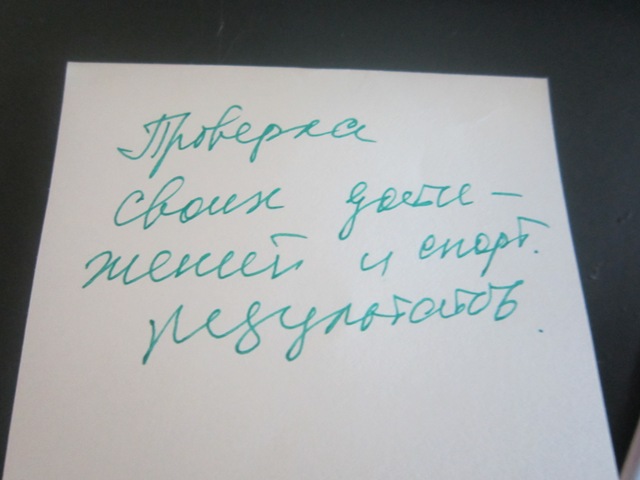 Проверка
своих дости-
жений и спорт.
результатов.